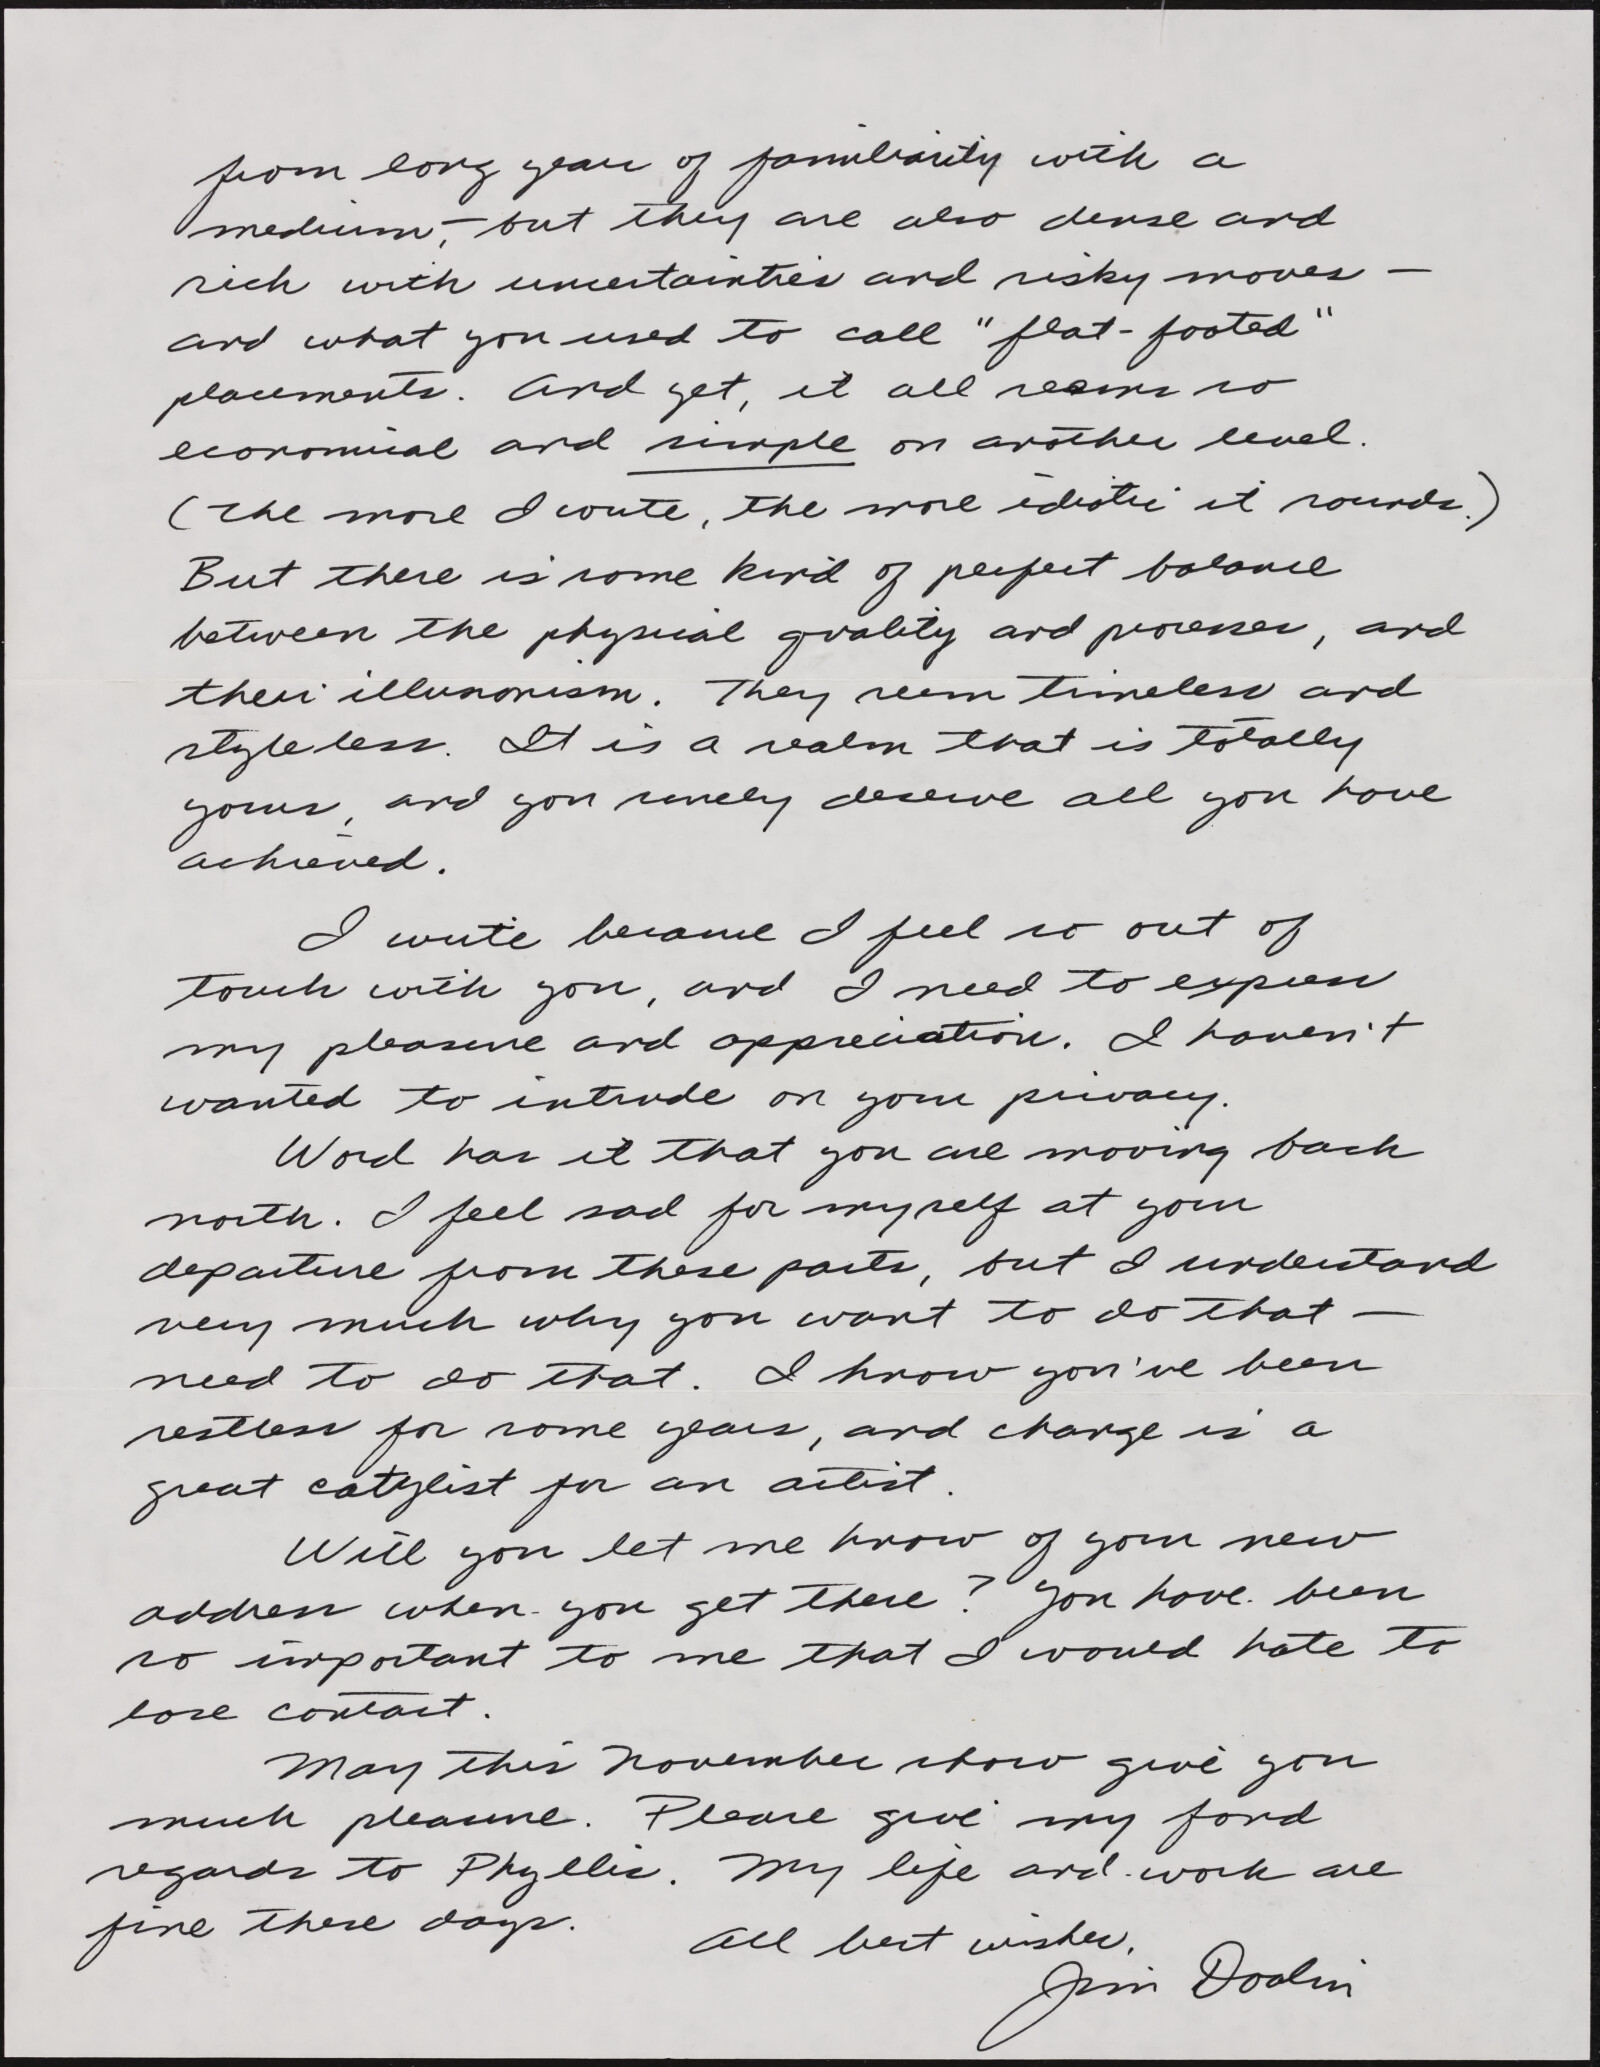 from long years of familiarity with a
medium, – but they are also dense and
rich with uncertainties and risky moves –
and what you used to call "flat-footed"
placements. And yet, it all seems so
economical and simple on another level.
(The more I write, the more idiotic it sounds.)
But there is some kind of perfect balance
between the physical quality and processes, and
their illusionism. They seem timeless and
styleless. It is a realm that is totally
yours, and you surely deserve all you have
achieved.
I write because I feel so out of
touch with you, and I need to express
my pleasure and appreciation. I haven't
wanted to intrude on your privacy.
Word has it that you are moving back
north. I feel sad for myself at your
departure from these parts, but I understand
very much why you want to do that –
need to do that. I know you've been
restless for some years, and change is a
great catylist for an artist.
Will you let me know of your new
address when you get there? You have been
so important to me that I would hate to
lose contact.
May this November show give you
much pleasure. Please give my fond
regards to Phyllis. My life and work are
fine these days.
All best wishes,
Jim Doolin